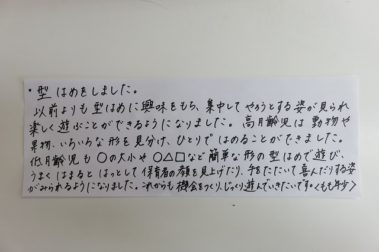 ・型はめをしました。
以前よりも型はめに興味をもち、集中してやろうとする姿が見られ
楽しく遊ぶことができるようになりました。高月齢児は動物や
果物、いろいろな形を見分け、ひとりではめることができました。
低月齢児も〇の大小や〇△□など簡単な形の型はめで遊び、
うまくはまるとはっとして保育者の顔を見上げたり、手をたたいて喜んだりする姿
がみられるようになりました。これからも機会をつくり、じっくり遊んでいきたいです。〈もも年少〉